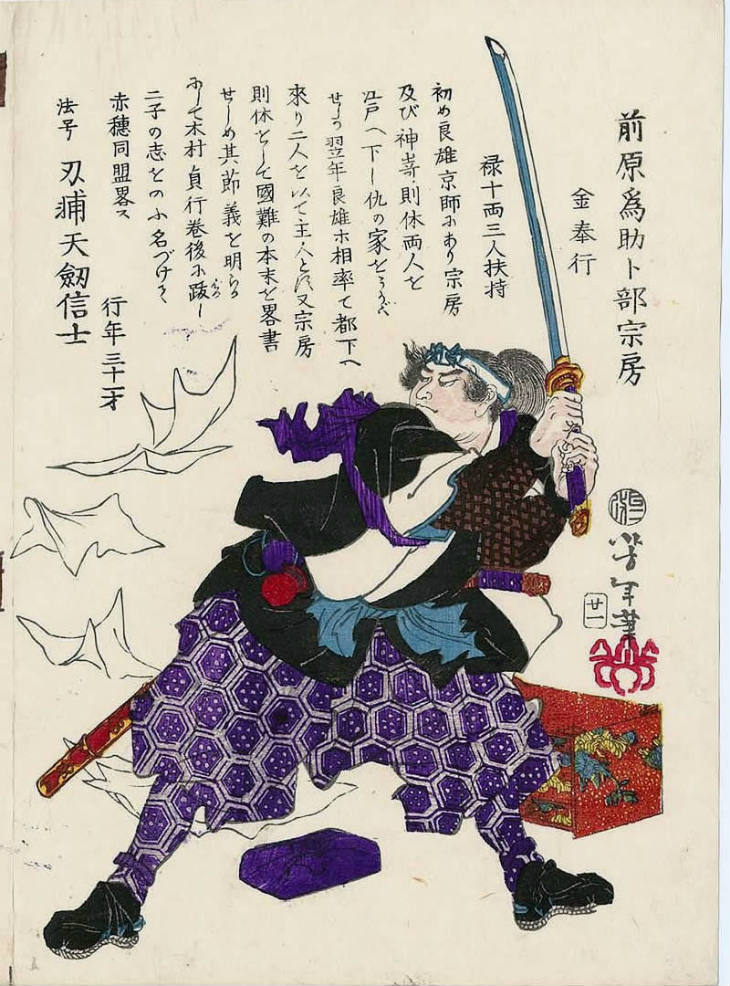 前原為助卜部宗房
金奉行
禄十両三人扶持
初め良雄京師にあり宗房
及び神嵜則休両人を
江戸へ下し仇の家をうかゞ
せしむ翌年良雄等相率て都下へ
来り二人を以て主人とす又宗房
則休をして國難の本末を畧書
せしめ其節義を明らか
にして木村貞行巻後に跋し
二子の志をのふ名づけて
赤穂同盟畧ス
行年三十一才
法号 刃補天劔信士
芳年筆
廿一